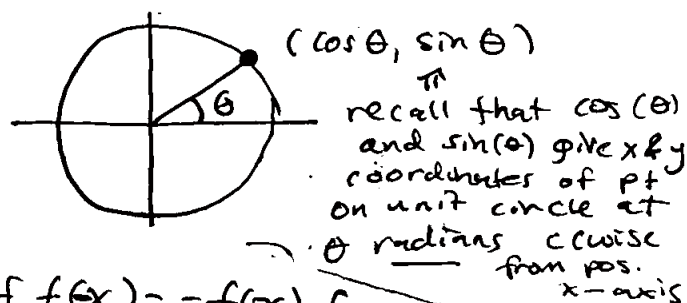 (cos θ, sin θ)
θ
recall that cos(θ)
and sin(θ) give x & y
coordinates of pt
on unit circle at
θ radians ccwise
from pos.
x-axis
f f(-x) = -f(x)